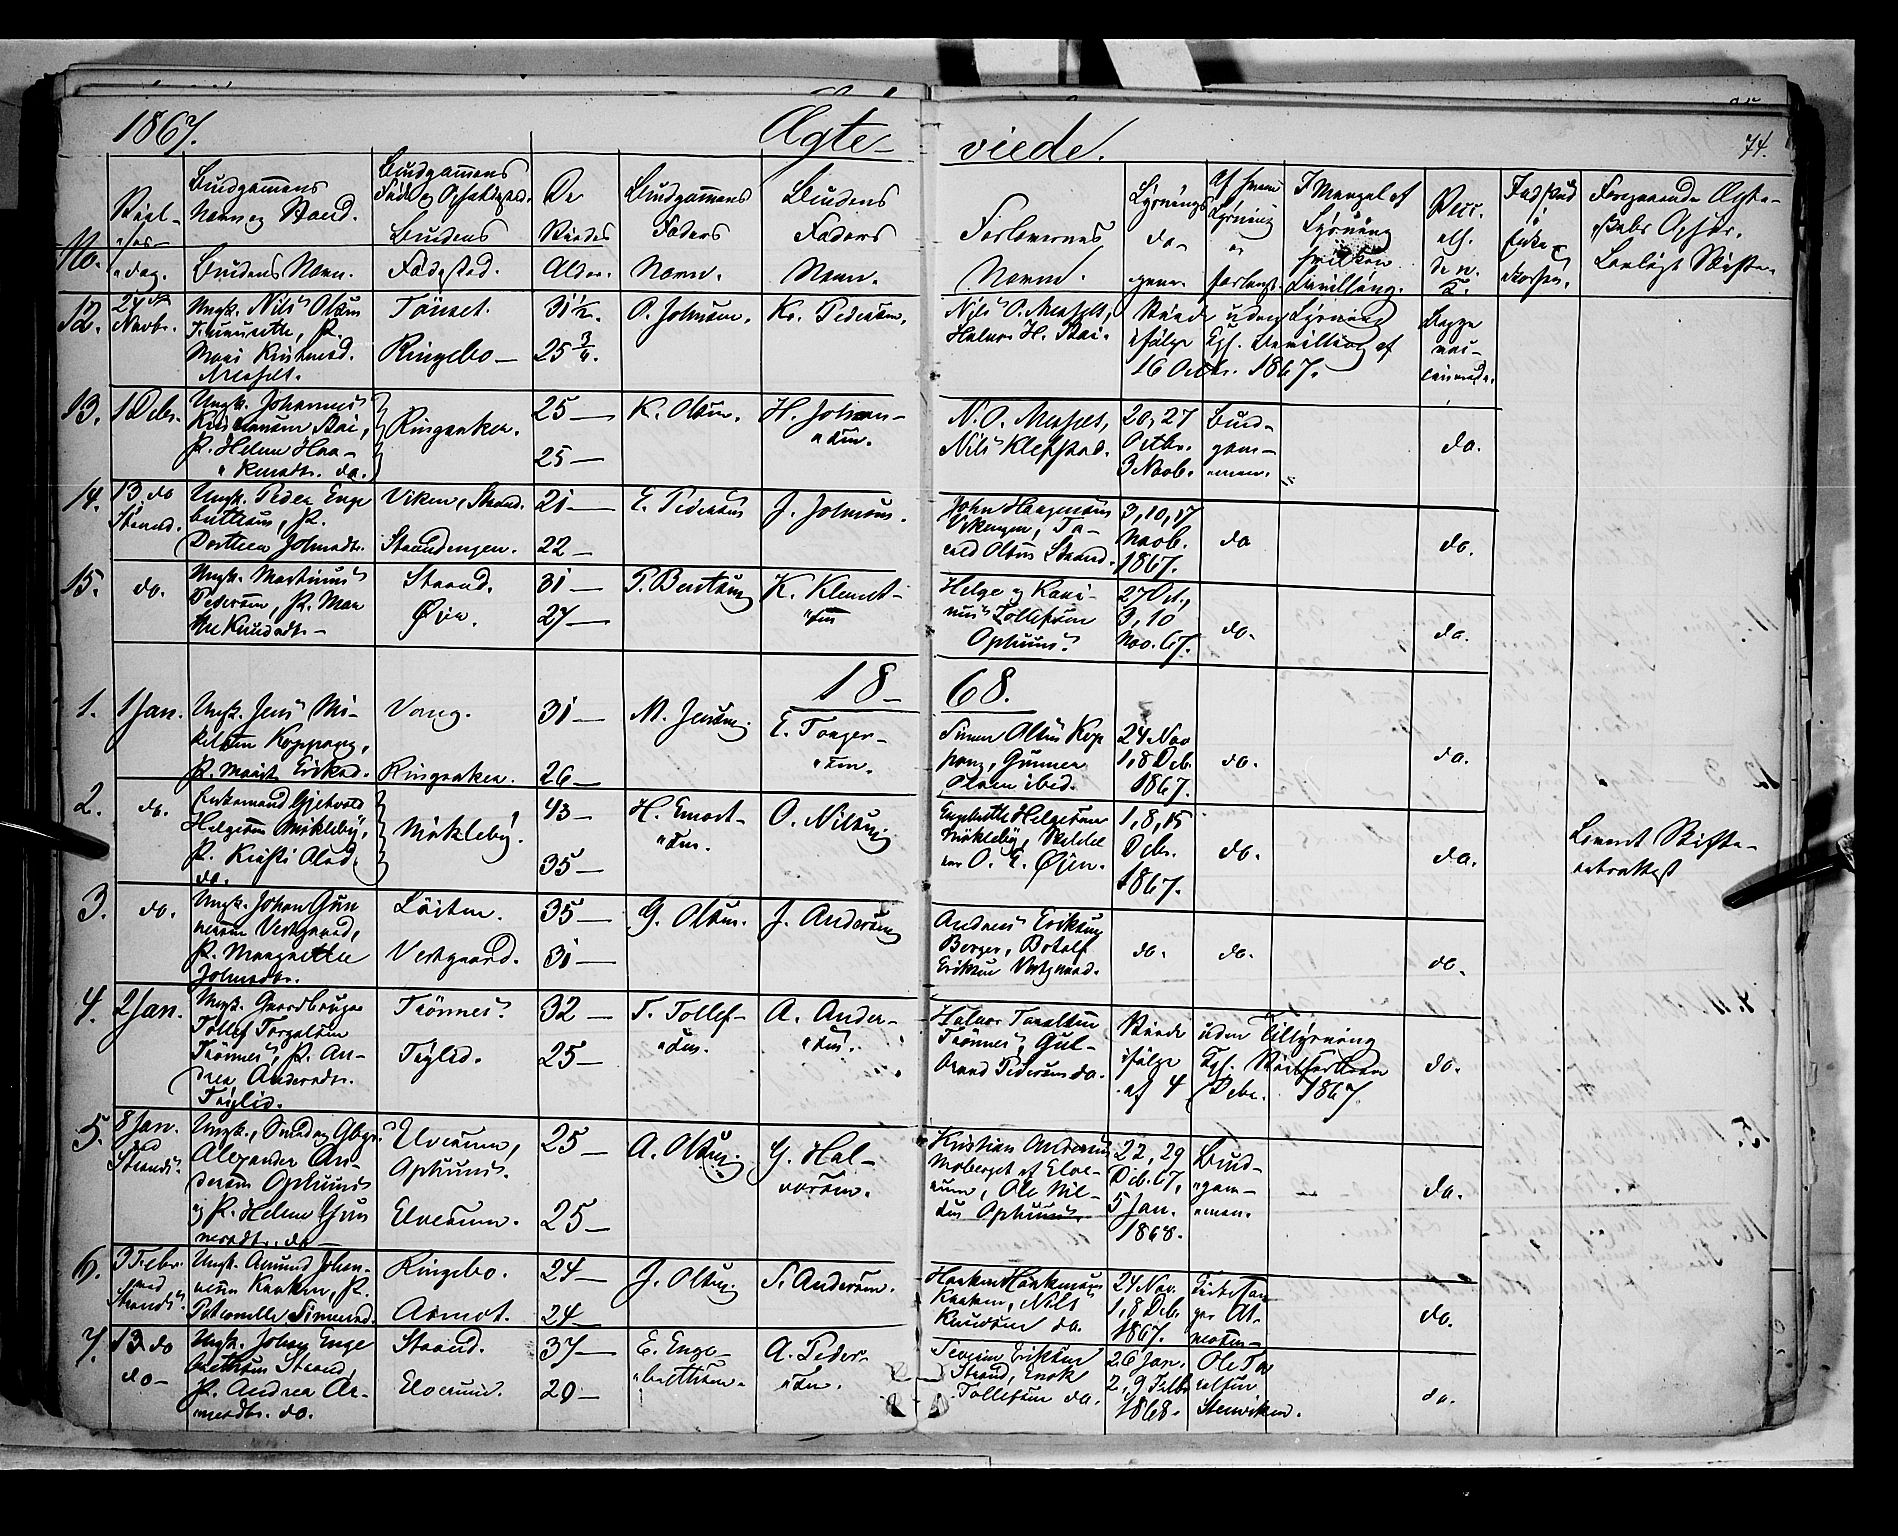 1867.
Ægte-
viede.
74.
No.
Viel-
ses-
dag.
Brudgommens
Navn og Stand.
Brudens Navn.
Brudgommens
Brudens
Fødested.
De
Viedes
Alder.
Brudgommens
Faders
Navn.
Brudens
Faders
Navn.
Forlovernes
Navne.
Lysnings
da-
gene.
Af hvem
Lysning
er
forlangt.
I Mangel af
Lysning
hvilken
Bevilling.
Vacc.
eth.
den.
Indskud
i
Enke
Foregaaende Ægte-
skabs Ophør.
Lovligt Skifte.
12.
24de
Novbr.
Ungk. Nils Olsen
P.
Mari
Messelt.
Tönset.
Ringebo-
31½.
25 3/4.
O. Johnsen.
Kr. Pedersen.
Nils O. Messelt,
Halvor H. Stai.
Viede uden Lysning
ifølge Kgl. Bevilling af
16 Octbr. 1867.
Begge
vac-
cinerede.
13.
1 Debr.
Ungk. Johannes
Kristiansen Stai,
P. Helene Haa-
kensdtr. do.
Ringsaker.
25-
25-
K. Olsen.
H. Johan-
sen.
N. O. Messelt,
Nils Kleppstad.
20, 27
Octbr.
3 Novb.
Brud-
gom-
men.
do.
14.
13. do
Strand.
Ungk. Peder Enge
bretsen, P.
Dorthea Johnsdtr.
Viken, Strand.
Strandengen.
21-
22-
E. Pedersens
J. Johnsens.
John Haagensens
Olsens Strand.
3, 10, 17
Novb.
1867.
do
do.
15.
do.
Ungk. Martinus
Pedersen, P. Mar
the Knudsdtr-
Strand.
Øien.
31-
27-
P. Bertsen
K. Klemet-
sen
Helge og Kari-
nus Tollefsen
Ophuus.
27 Oct.,
3, 10
Nov. 67.
do.
do.
18-
68.
1.
1 Jan.
Ungk. Jens Mi-
kelsen Koppang,
P. Marit Eriksd.
Vang.
Ringsaker.
31-
26-
M. Jensen.
E. Torger-
sen.
Simen Olsen Kop
pang, Gunner
Olsen ibid.
24 Nov
1, 8 Deb.
1867.
do.
do.
2.
do.
Enkemand Gjetvold
Helgesen Mökleby,
P. Kirsti Olsd.
do.
Mökleby.
43-
35-
H. Emort-
sen.
O. Nilsen
Engebrette Helgesen
Mökleby,
O. E. Øien.
1, 8, 15
Debr.
1867.
do.
do.
Lovent Skifte-
3.
do.
Ungk. Johan Gun
nersen Vestgaard,
P. Margrethe
Johnsdtr.
Löiten.
Vestgaard.
35-
31-
G. Olsen.
J. Andersen
Andreas Eriksen
Berger, Botolf
Eriksen Vestgaard.
do.
do.
do.
4.
2 Jan.
Ungk. Gaardbruger
Tollef Torgalsen
Trönnes, P. An-
drea Andersdtr.
Trönnes.
32
25-
T. Tollef-
sen.
A. Ander-
sen.
Halvor Toralsen
Trönnes, Gul-
brand Pedersen do.
Viede uden Tillysning
ifølge Kgl.
af 4 Debr. 1867.
do.
5.
8 Jan.
ved
Strands.
Ungk.,
Alexander An-
dersen Ophuus
og P. Helene Gun
nersdtr. do-
Elverum,
Ophuus.
Elverum.
25-
25-
A. Olsen
G. Hal-
vorsen.
Kristian Andersen
Moberget af Elve-
rum, Ole Nil-
sen Ophuus
22, 29
Deb. 67,
5 Jan.
1868.
Brud-
gom-
men.
do.
6.
3 Febr.
ved
Strands.
Ungk. Amund Johan-
nesen Kroken, P.
Petronelle Simensd.
Ringebo.
Aamot.
24-
24-
J. Olsen
S. Andersen.
Haaken Haakensen
Kroken, Nils
Knudsen do.
24 Nov.
1, 8 Deb.
1867.
do.
7.
13. do
do-
Ungk. Johan Enge
bretsen Strand,
P. Andrea Ar-
nesdtr. do.
Strand.
Elverum.
37-
20-
E. Enge-
bretsen.
A. Peder-
sen.
Severin Eriksen
Strand, Enok
Tollefsen do.
26 Jan.
2, 9 Febr
1868.
Ole To
ralsen
Stenviken.
do.